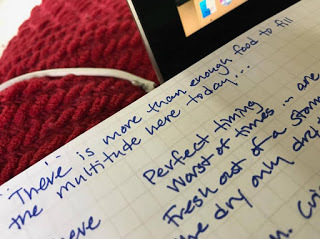 "There" is more than enough food to fill
the multitude here today...
Perfect timing
Worst of times... are
Fresh out of a
dry only